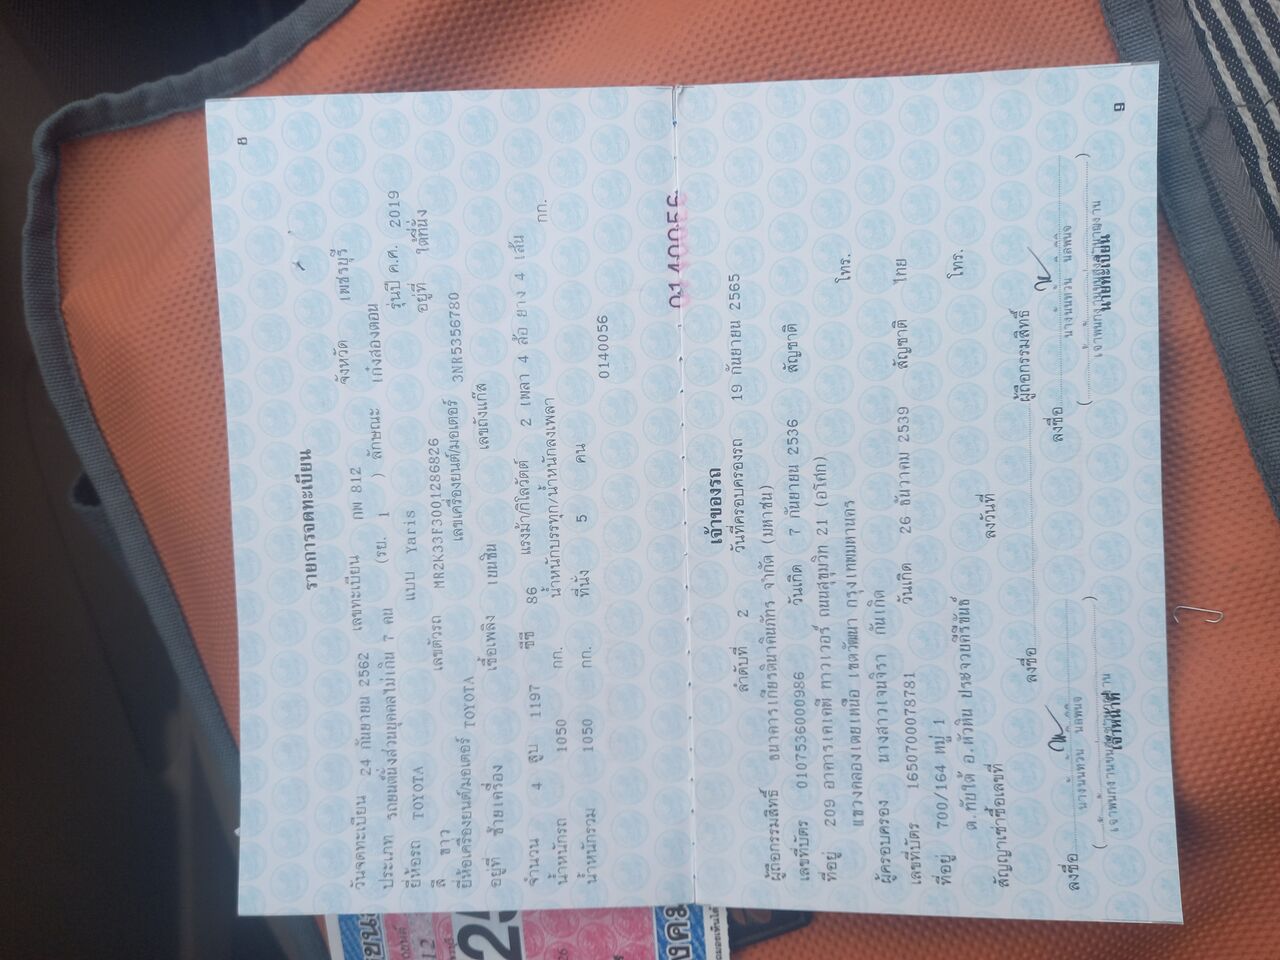 8
รายการจดทะเบียน
วันจดทะเบียน 24 กันยายน 2562 เลขทะเบียน กพ 812 จังหวัด เพชรบุรี
ประเภท รถยนต์นั่งส่วนบุคคลไม่เกิน 7 คน (รย. 1 ) ลักษณะ เก๋งสองตอน
ยี่ห้อรถ TOYOTA แบบ Yaris รุ่นปี ค.ศ. 2019
สี ขาว เลขตัวรถ MR2K33F3001286826 อยู่ที่ ใต้ที่นั่ง
ยี่ห้อเครื่องยนต์/มอเตอร์ TOYOTA เลขเครื่องยนต์/มอเตอร์ 3NR5356780
อยู่ที่ ซ้ายเครื่อง เชื้อเพลิง เบนซิน เลขถังแก๊ส
จำนวน 4 สูบ 1197 ซีซี 86 แรงม้า/กิโลวัตต์ 2 เพลา 4 ล้อ ยาง 4 เส้น
น้ำหนักรถ 1050 กก. น้ำหนักบรรทุก/น้ำหนักลงเพลา กก.
น้ำหนักรวม 1050 กก. ที่นั่ง 5 คน
0140056
0140056
เจ้าของรถ
ลำดับที่ 2 วันที่ครอบครองรถ 19 กันยายน 2565
ผู้ถือกรรมสิทธิ์ ธนาคารเกียรตินาคินภัทร จำกัด (มหาชน)
เลขที่บัตร 0107536000986 วันเกิด 7 กันยายน 2536 สัญชาติ
ที่อยู่ 209 อาคารเคเคพี ทาวเวอร์ ถนนสุขุมวิท 21 (อโศก)
แขวงคลองเตยเหนือ เขตวัฒนา กรุงเทพมหานคร โทร.
ผู้ครอบครอง นางสาวเจนจิรา กันเกิด
เลขที่บัตร 1650700078781 วันเกิด 26 ธันวาคม 2539 สัญชาติ ไทย
ที่อยู่ 700/164 หมู่ 1
ต.ทับใต้ อ.หัวหิน ประจวบคีรีขันธ์ โทร.
สัญญาเช่าซื้อเลขที่ ลงวันที่
ลงชื่อ ผู้ถือกรรมสิทธิ์
ลงชื่อ ลงชื่อ
เจ้าหน้าที่ นายทะเบียน
9
12
25